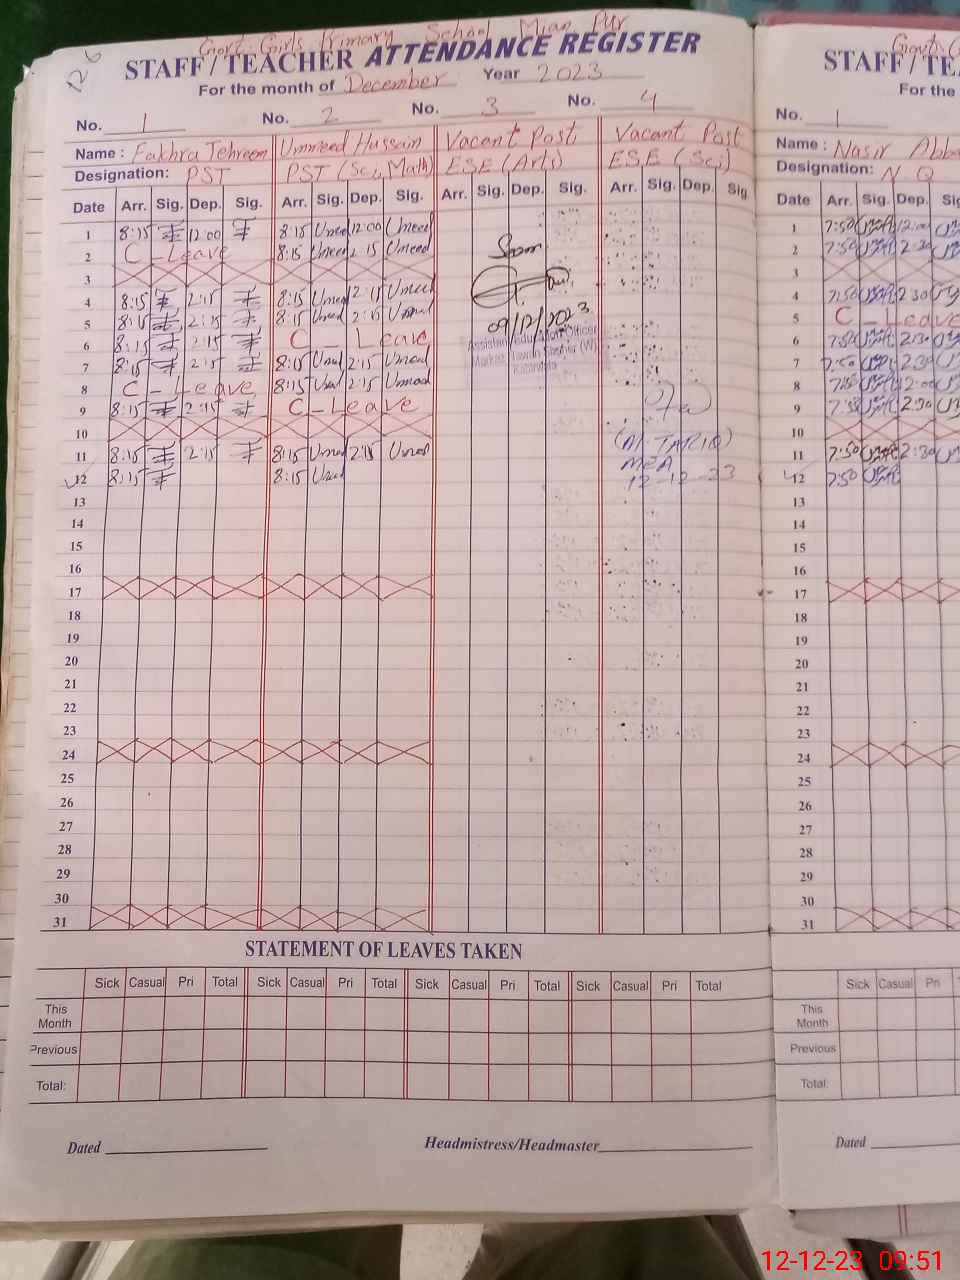 Govt. Girls Primary School Mian Pur
STAFF / TEACHER ATTENDANCE REGISTER
For the month of December Year 2023
No. 1 No. 2 No. 3 No. 4
Name : Fakhra Tehreem Ummeed Hussain Vacant Post Vacant Post
Designation: PST PST (Sci, Math) ESE (Arts) ESE (Sci)
Date Arr. Sig. Dep. Sig. Arr. Sig. Dep. Sig. Arr. Sig. Dep. Sig. Arr. Sig. Dep. Sig
1 8:15 12:00 8:15 Umeed 12:00 Umeed
2 C - Leave 8:15 Umeed 2:15 Umeed
3
4 8:15 2:15 8:15 Umeed 2:15 Umeed
5 8:15 2:15 8:15 Umeed 2:15 Umeed
6 8:15 2:15 C - Leave
7 8:15 2:15 8:15 Umeed 2:15 Umeed
8 C - Leave 8:15 Umeed 2:15 Umeed
9 8:15 2:15 C - Leave
10
11 8:15 2:15 8:15 Umeed 2:15 Umeed
12 8:15 8:15 Umeed
13
14
15
16
17
18
19
20
21
22
23
24
25
26
27
28
29
30
31
09/12/2023
Assistant Education Officer
(AL-TARIQ)
MEA
12-12-23
STATEMENT OF LEAVES TAKEN
Sick Casual Pri Total Sick Casual Pri Total Sick Casual Pri Total Sick Casual Pri Total
This Month
Previous
Total:
Dated Headmistress/Headmaster
Govt. G
STAFF / TEA
For the
No. 1
Name : Nasir Abba
Designation: N Q
Date Arr. Sig. Dep. Sig
1 7:50 12:00
2 7:50 2:30
3
4 7:50 2:30
5 C - Leave
6 7:50 2:30
7 7:50 2:30
8 7:50 12:00
9 7:50 2:30
10
11 7:50 2:30
12 7:50
13
14
15
16
17
18
19
20
21
22
23
24
25
26
27
28
29
30
31
Sick Casual Pri T
This Month
Previous
Total:
Dated
12-12-23 09:51